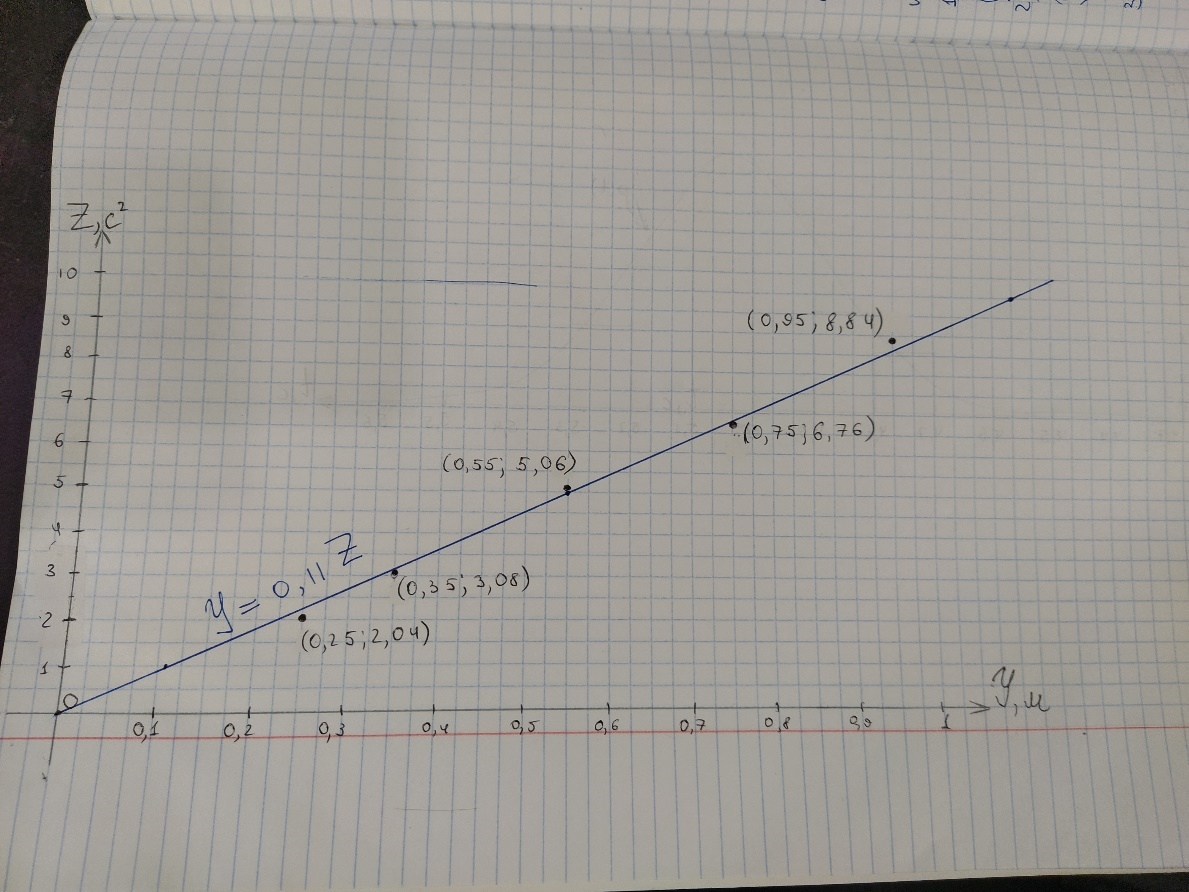 Z, c²
10
9
8
7
6
5
4
3
2
1
0
(0,95; 8,84)
(0,75; 6,76)
(0,55; 5,06)
(0,35; 3,08)
(0,25; 2,04)
y = 0,11 Z
0,1 0,2 0,3 0,4 0,5 0,6 0,7 0,8 0,9 1
y, м